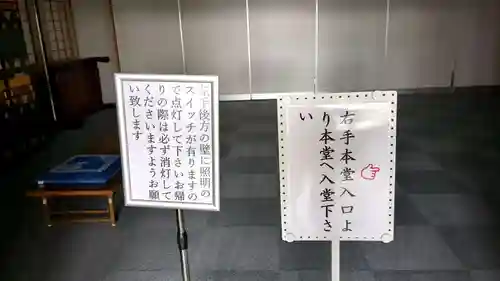 手後方の壁に照明の
スイッチが有りますの
で点灯して下さいお帰
りの際は必ず消灯して
くださいますようお願
い致します
右手本堂入口よ
り本堂へ入堂下さ
い